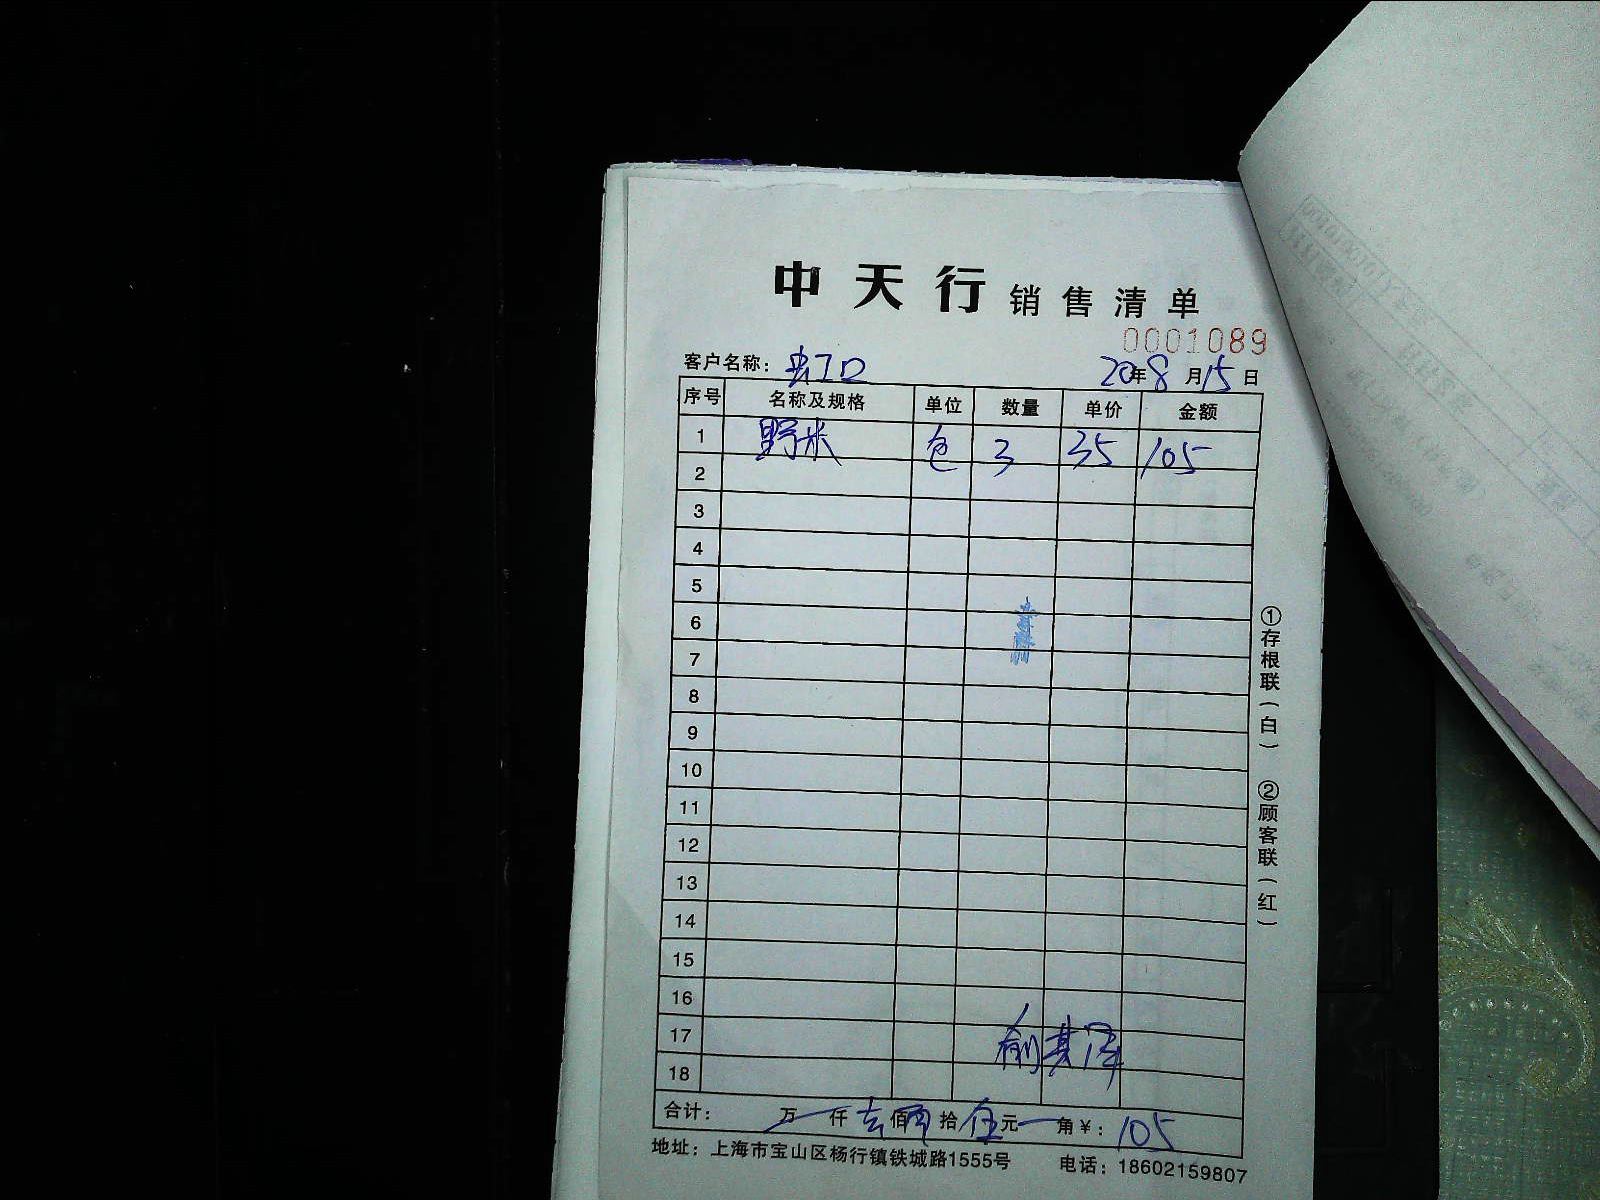 中天行 销售清单
0001089
客户名称: 虹口 20年8月15日
序号 名称及规格 单位 数量 单价 金额
1 野米 包 3 35 105
2
3
4
5
6
7
8
9
10
11
12
13
14
15
16
17
18
合计: 万 仟 壹佰零拾伍元 角¥: 105
地址: 上海市宝山区杨行镇铁城路1555号 电话: 18602159807
①存根联(白) ②顾客联(红)